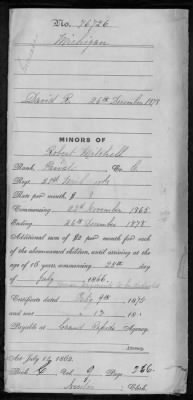 No. 76726
Michigan
David R. 26th December 1878
MINORS OF
Robert Mitchell
Rank, Private Co. C.
Regt. 21st Mich
Rate per month, $ 8
Commencing 22d November 1865
Ending 26th December 1878
Additional sum of $2 per month for each
of the above-named children, until arriving at the
age of 16 years commencing 25th day
of July 1866.
Certificate dated Feby 9th 1870
and sent 12 18
Payable at Grand Rapids Agency.
Act July 14, 1862.
Book C Vol. 9 Page 226
Clerk.